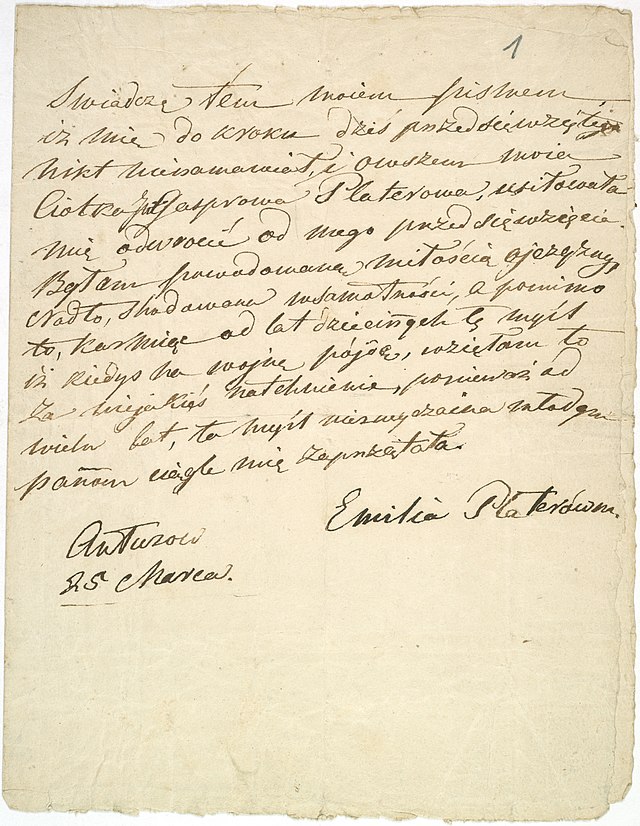 1
Swiadczę tem moiem pismem,
iż mię do kroku dziś przedsięwziętego
nikt nienamawiał, i owszem moia
Ciotka Gasprowa Platerowa, usiłowała
mię odwrocić od mego przedsięwzięcia.
Byłam spowodowana miłością ojczyzny,
Nadto, shodowana w samotności, a pomimo
to, karmiąc od lat dziecinnych tę myśl
iż kiedyś na wojnę pójdę, wzięłam to
za niejakieś natchnienie, ponieważ od
wielu lat, ta myśl niezwyczaina młodym
pannom ciągle mię zaprzętała.
Emilia Platerówna.
Antuzow
25 Marca.